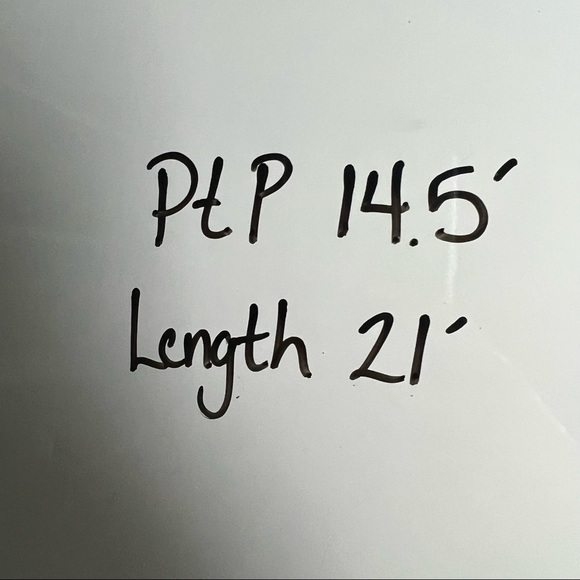 PtP 14.5′
Length 21′